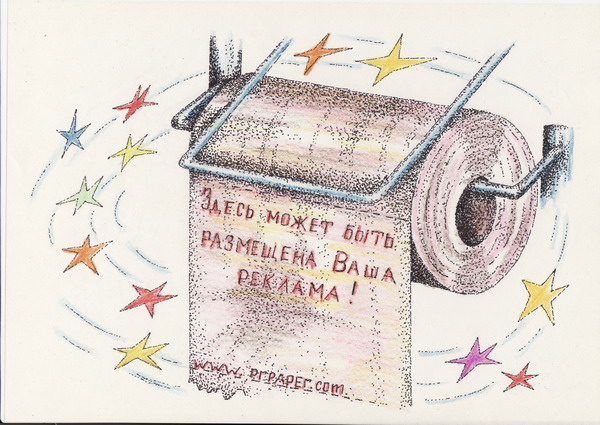 Здесь может быть
размещена Ваша
реклама!
www.PrPAPEr.com